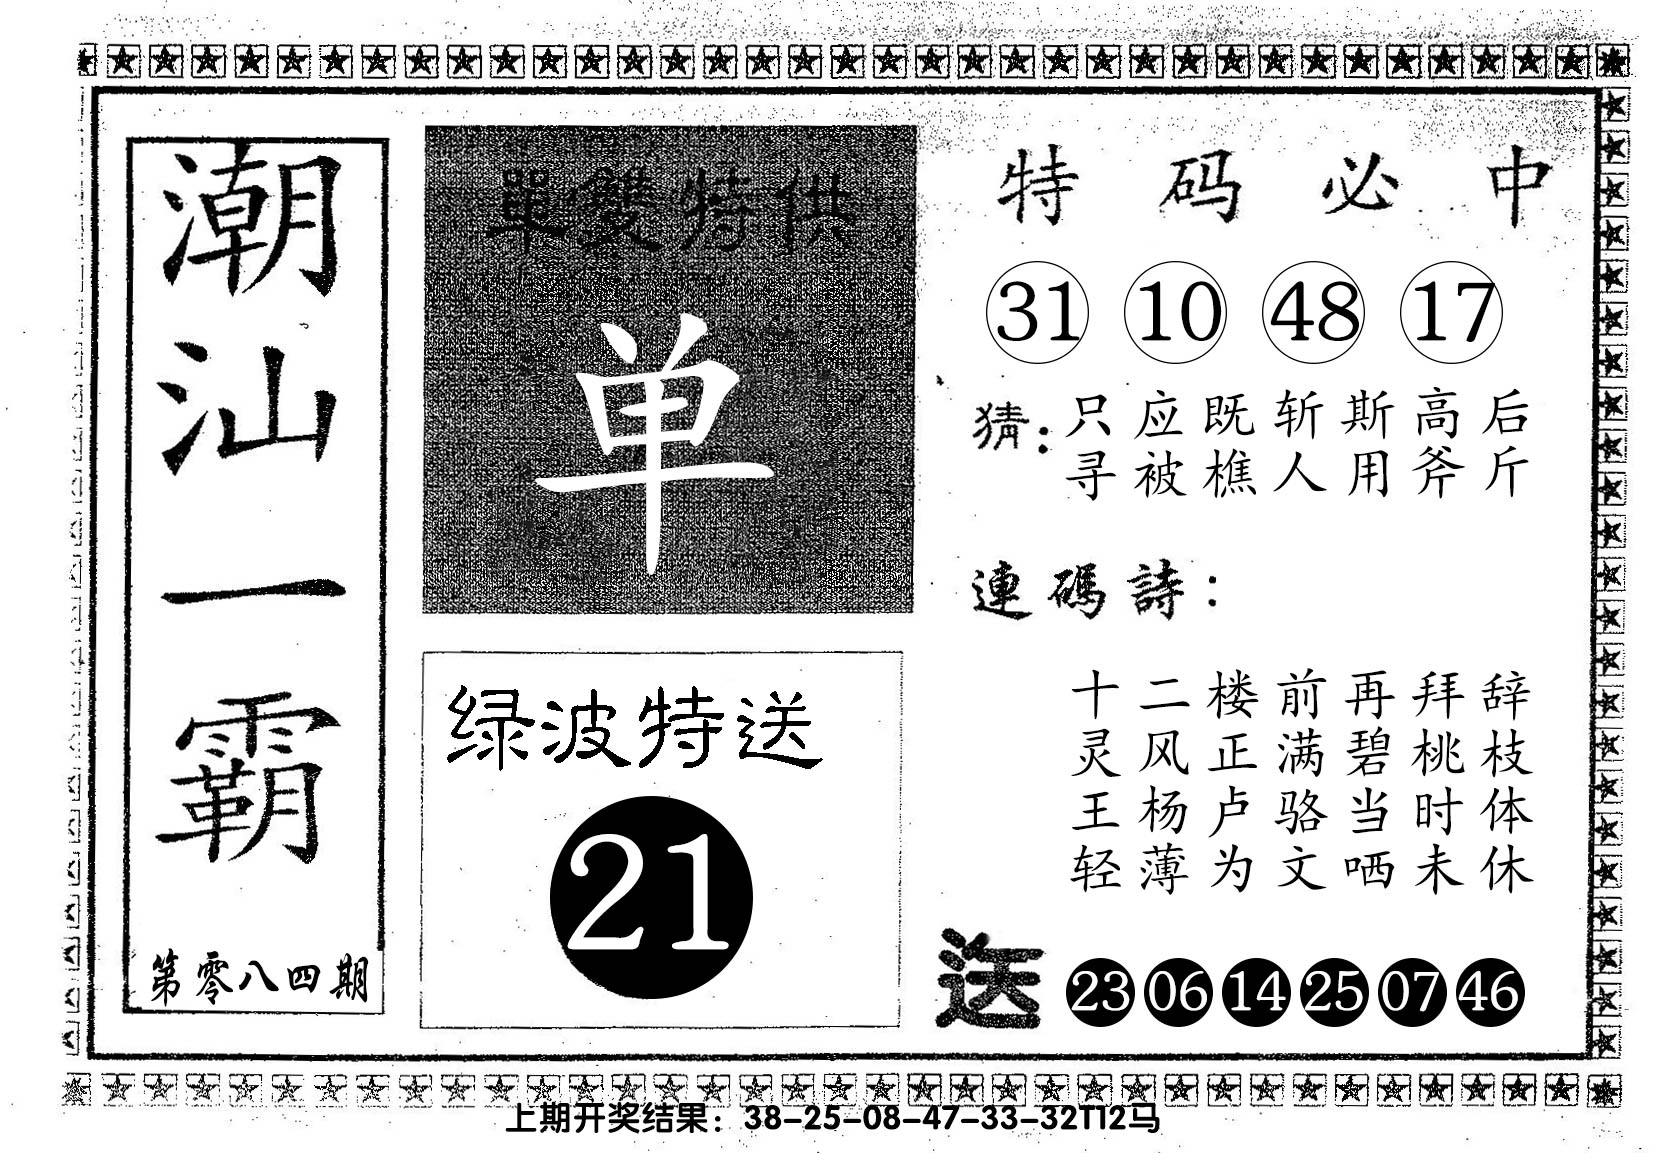 潮汕一霸
第零八四期
單雙特供
单
绿波特送
21
特码必中
31 10 48 17
猜：只应既斩斯高后
寻被樵人用斧斤
連碼詩：
十二楼前再拜辞
灵风正满碧桃枝
王杨卢骆当时体
轻薄为文哂未休
送 23 06 14 25 07 46
上期开奖结果：38-25-08-47-33-32T12马